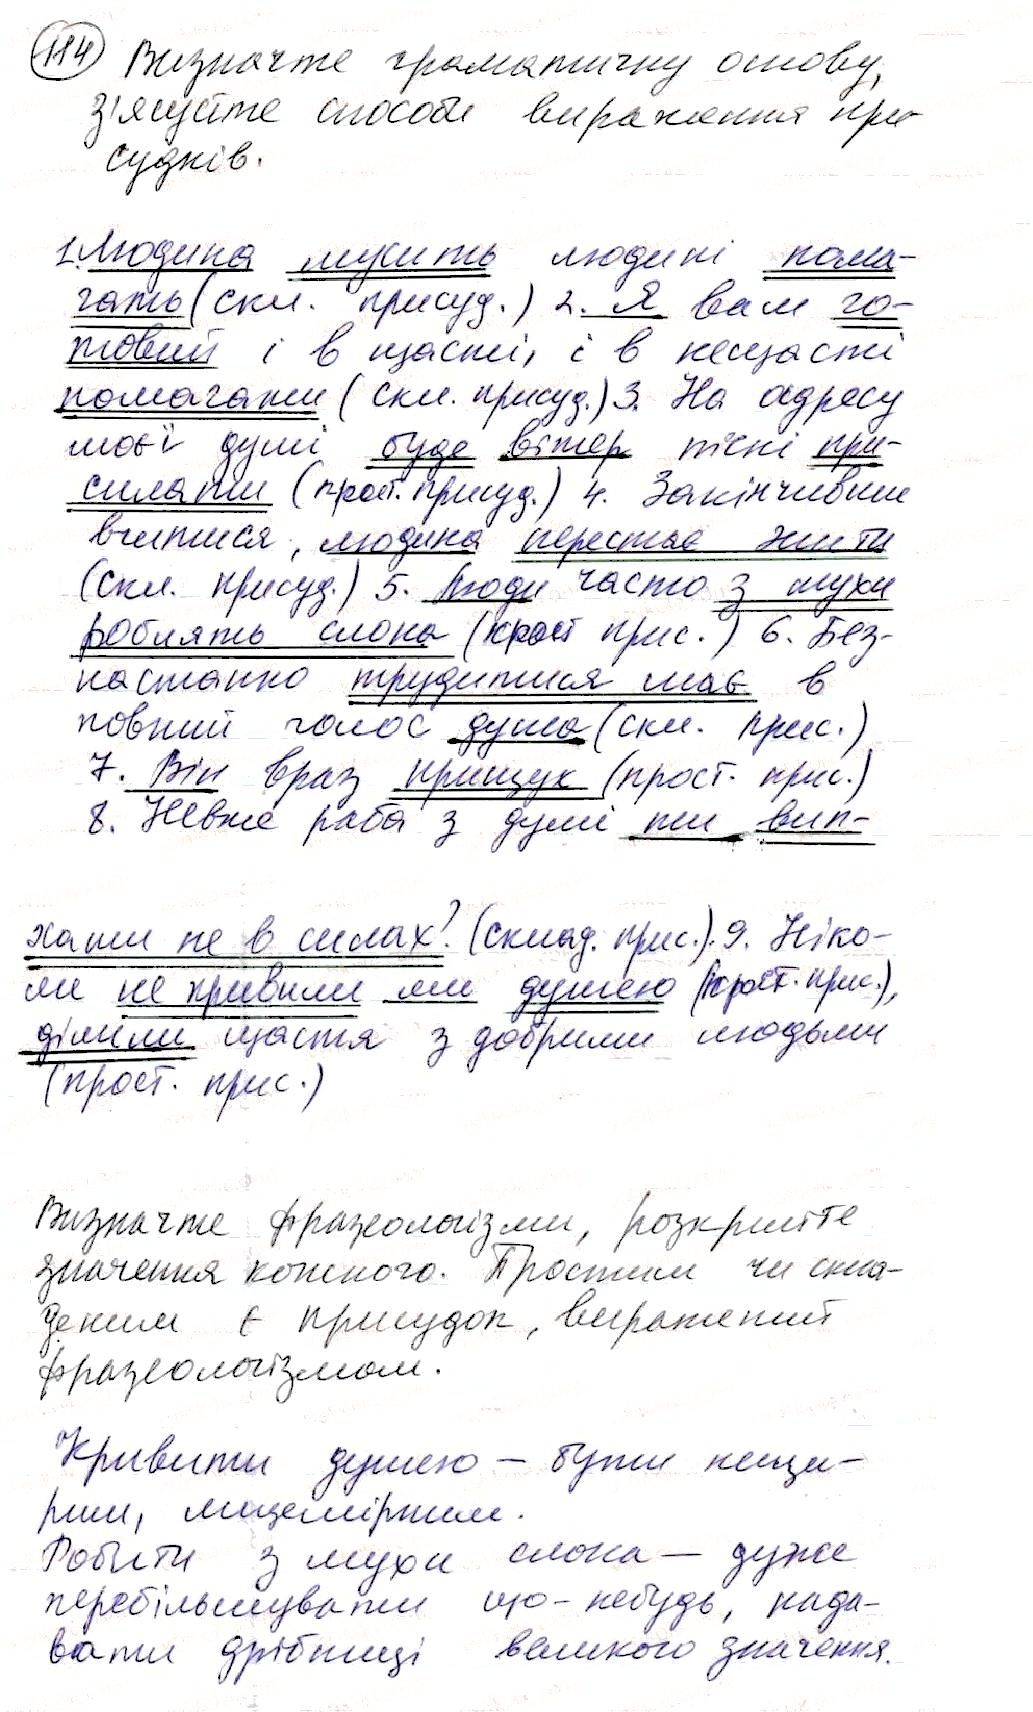 184 Визначте граматичну основу,
з'ясуйте способи вираження при-
судків.
1. Людина мусить людині пома-
гать (скл. присуд.) 2. Я вам го-
товий і в щасті, і в нещасті
помагати (скл. присуд.) 3. На адресу
моєї душі буде вітер пісні при-
силати (прост. присуд.) 4. Закінчивши
вчитися, людина перестає жити
(скл. присуд.) 5. Люди часто з мухи
роблять слона (прост прис.) 6. Без-
настанно трудитися має в
повний голос душа (скл. прис.)
7. Він враз прищух (прост. прис.)
8. Невже раба з душі ти вип-
хати не в силах? (склад. прис.). 9. Ніко-
ли не кривили ми душею (прост. прис.),
ділили щастя з добрими людьми
(прост. прис.)
Визначте фразеологізми, розкрийте
значення кожного. Простим чи скла-
деним є присудок, виражений
фразеологізмом.
Кривити душею – бути нещи-
рим, лицемірним.
Робити з мухи слона – дуже
перебільшувати що-небудь, нада-
вати дрібниці великого значення.